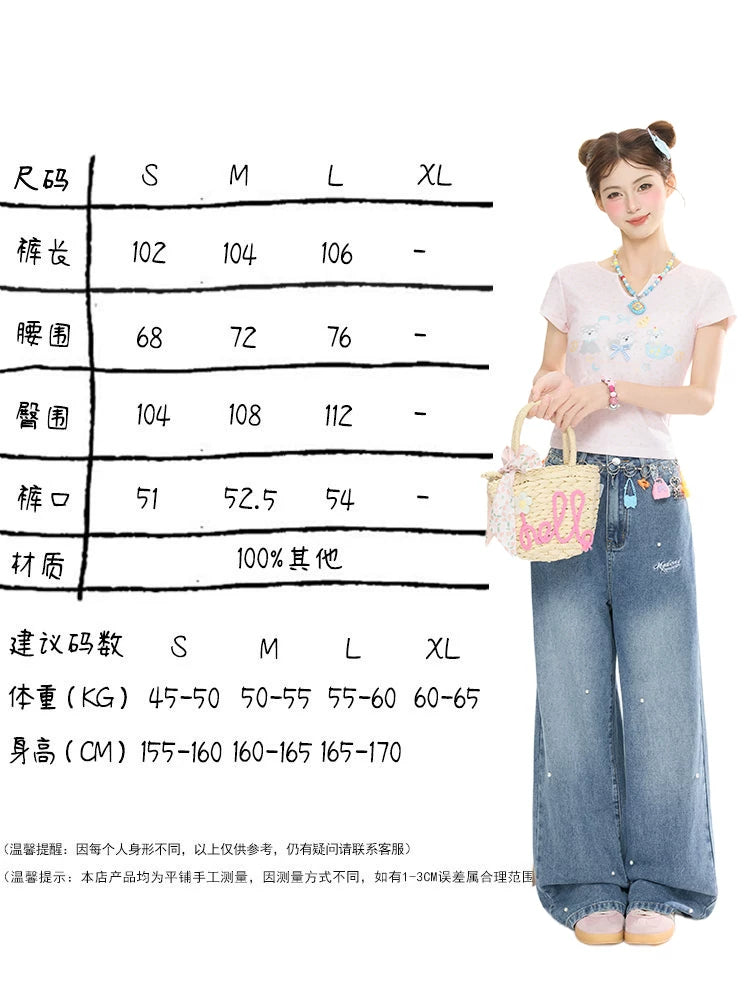 尺码 S M L XL
裤长 102 104 106 -
腰围 68 72 76 -
臀围 104 108 112 -
裤口 51 52.5 54 -
材质 100%其他
建议码数 S M L XL
体重(KG) 45-50 50-55 55-60 60-65
身高(CM) 155-160 160-165 165-170
(温馨提醒：因每个人身形不同，以上仅供参考，仍有疑问请联系客服)
(温馨提示：本店产品均为平铺手工测量，因测量方式不同，如有1-3CM误差属合理范围
hello